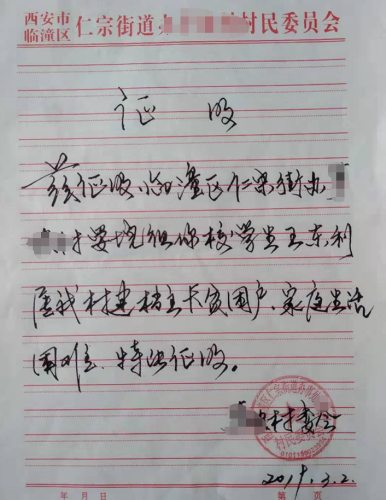 西安市
临潼区 仁宗街道 村民委员会
证明
兹证明临潼区仁宗街办
村 组你校学生王东利
属我村建档立卡贫困户、家庭生活
困难、特此证明。
村委会
2019.3.2.
年 月 日 第 页